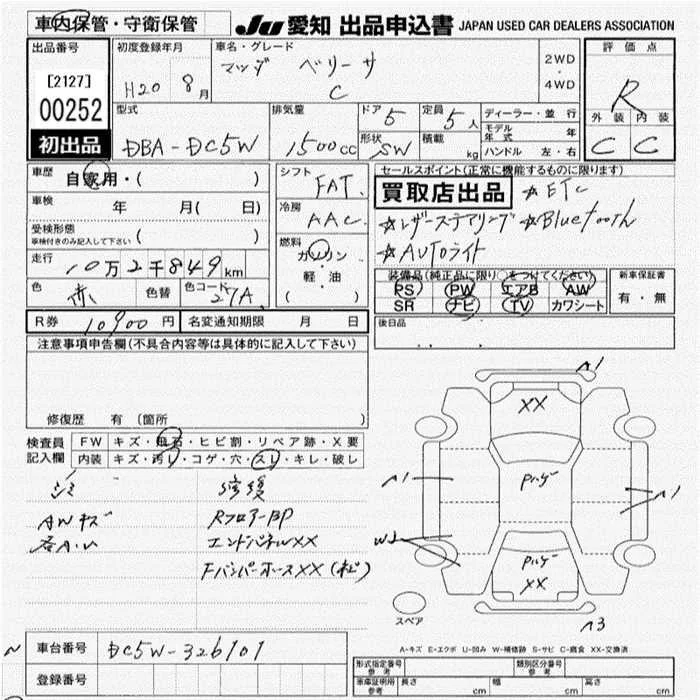 車内保管・守衛保管
JU 愛知 出品申込書 JAPAN USED CAR DEALERS ASSOCIATION
出品番号
[2127]
00252
初出品
初度登録年月
H20 8月
車名・グレード
マツダ ベリーサ
C
2WD
・
4WD
評価点
R
外装 内装
C C
型式
DBA-DC5W
排気量
1500cc
ドア 5
形状 SW
定員 5人
積載 kg
ディーラー・並行
モデル年式 年
ハンドル 左・右
車歴 自家用・( )
車検 年 月( 日)
受検形態
車検付きのみ記入して下さい ( )
走行 10万2千849km
色 赤 色替 色コード 27A
シフト FAT
冷房 AAC
燃料 ガソリン
・
軽・油
( )
セールスポイント(正常に機能するものに限ります)
買取店出品 ☆ETC
☆レザーステアリング ☆Bluetooth
☆AUTOライト
装備品(純正品に限り○をつけてください)
PS PW エアB AW
SR ナビ TV カワシート
新車保証書
有・無
R券 10900円 名変通知期限 月 日
後日品
注意事項申告欄(不具合内容等は具体的に記入して下さい)
修復歴 有 〔箇所 〕
検査員記入欄
FW キズ・飛石・ヒビ割・リペア跡・X要
内装 キズ・汚れ・コゲ・穴・スレ・キレ・破レ
修復
AWキズ RフロアーBP
各A.U エンドパネルXX
XX
A1
A1
A1
W2
XX
A3
スペア
A-キズ E-エクボ U-凹み W-補修跡 S-サビ C-腐食 XX-交換済
車台番号 DC5W-326101
登録番号
形式指定番号 参考
類別区分番号 参考
車庫証明所 参考 長さ cm 幅 cm 高さ cm